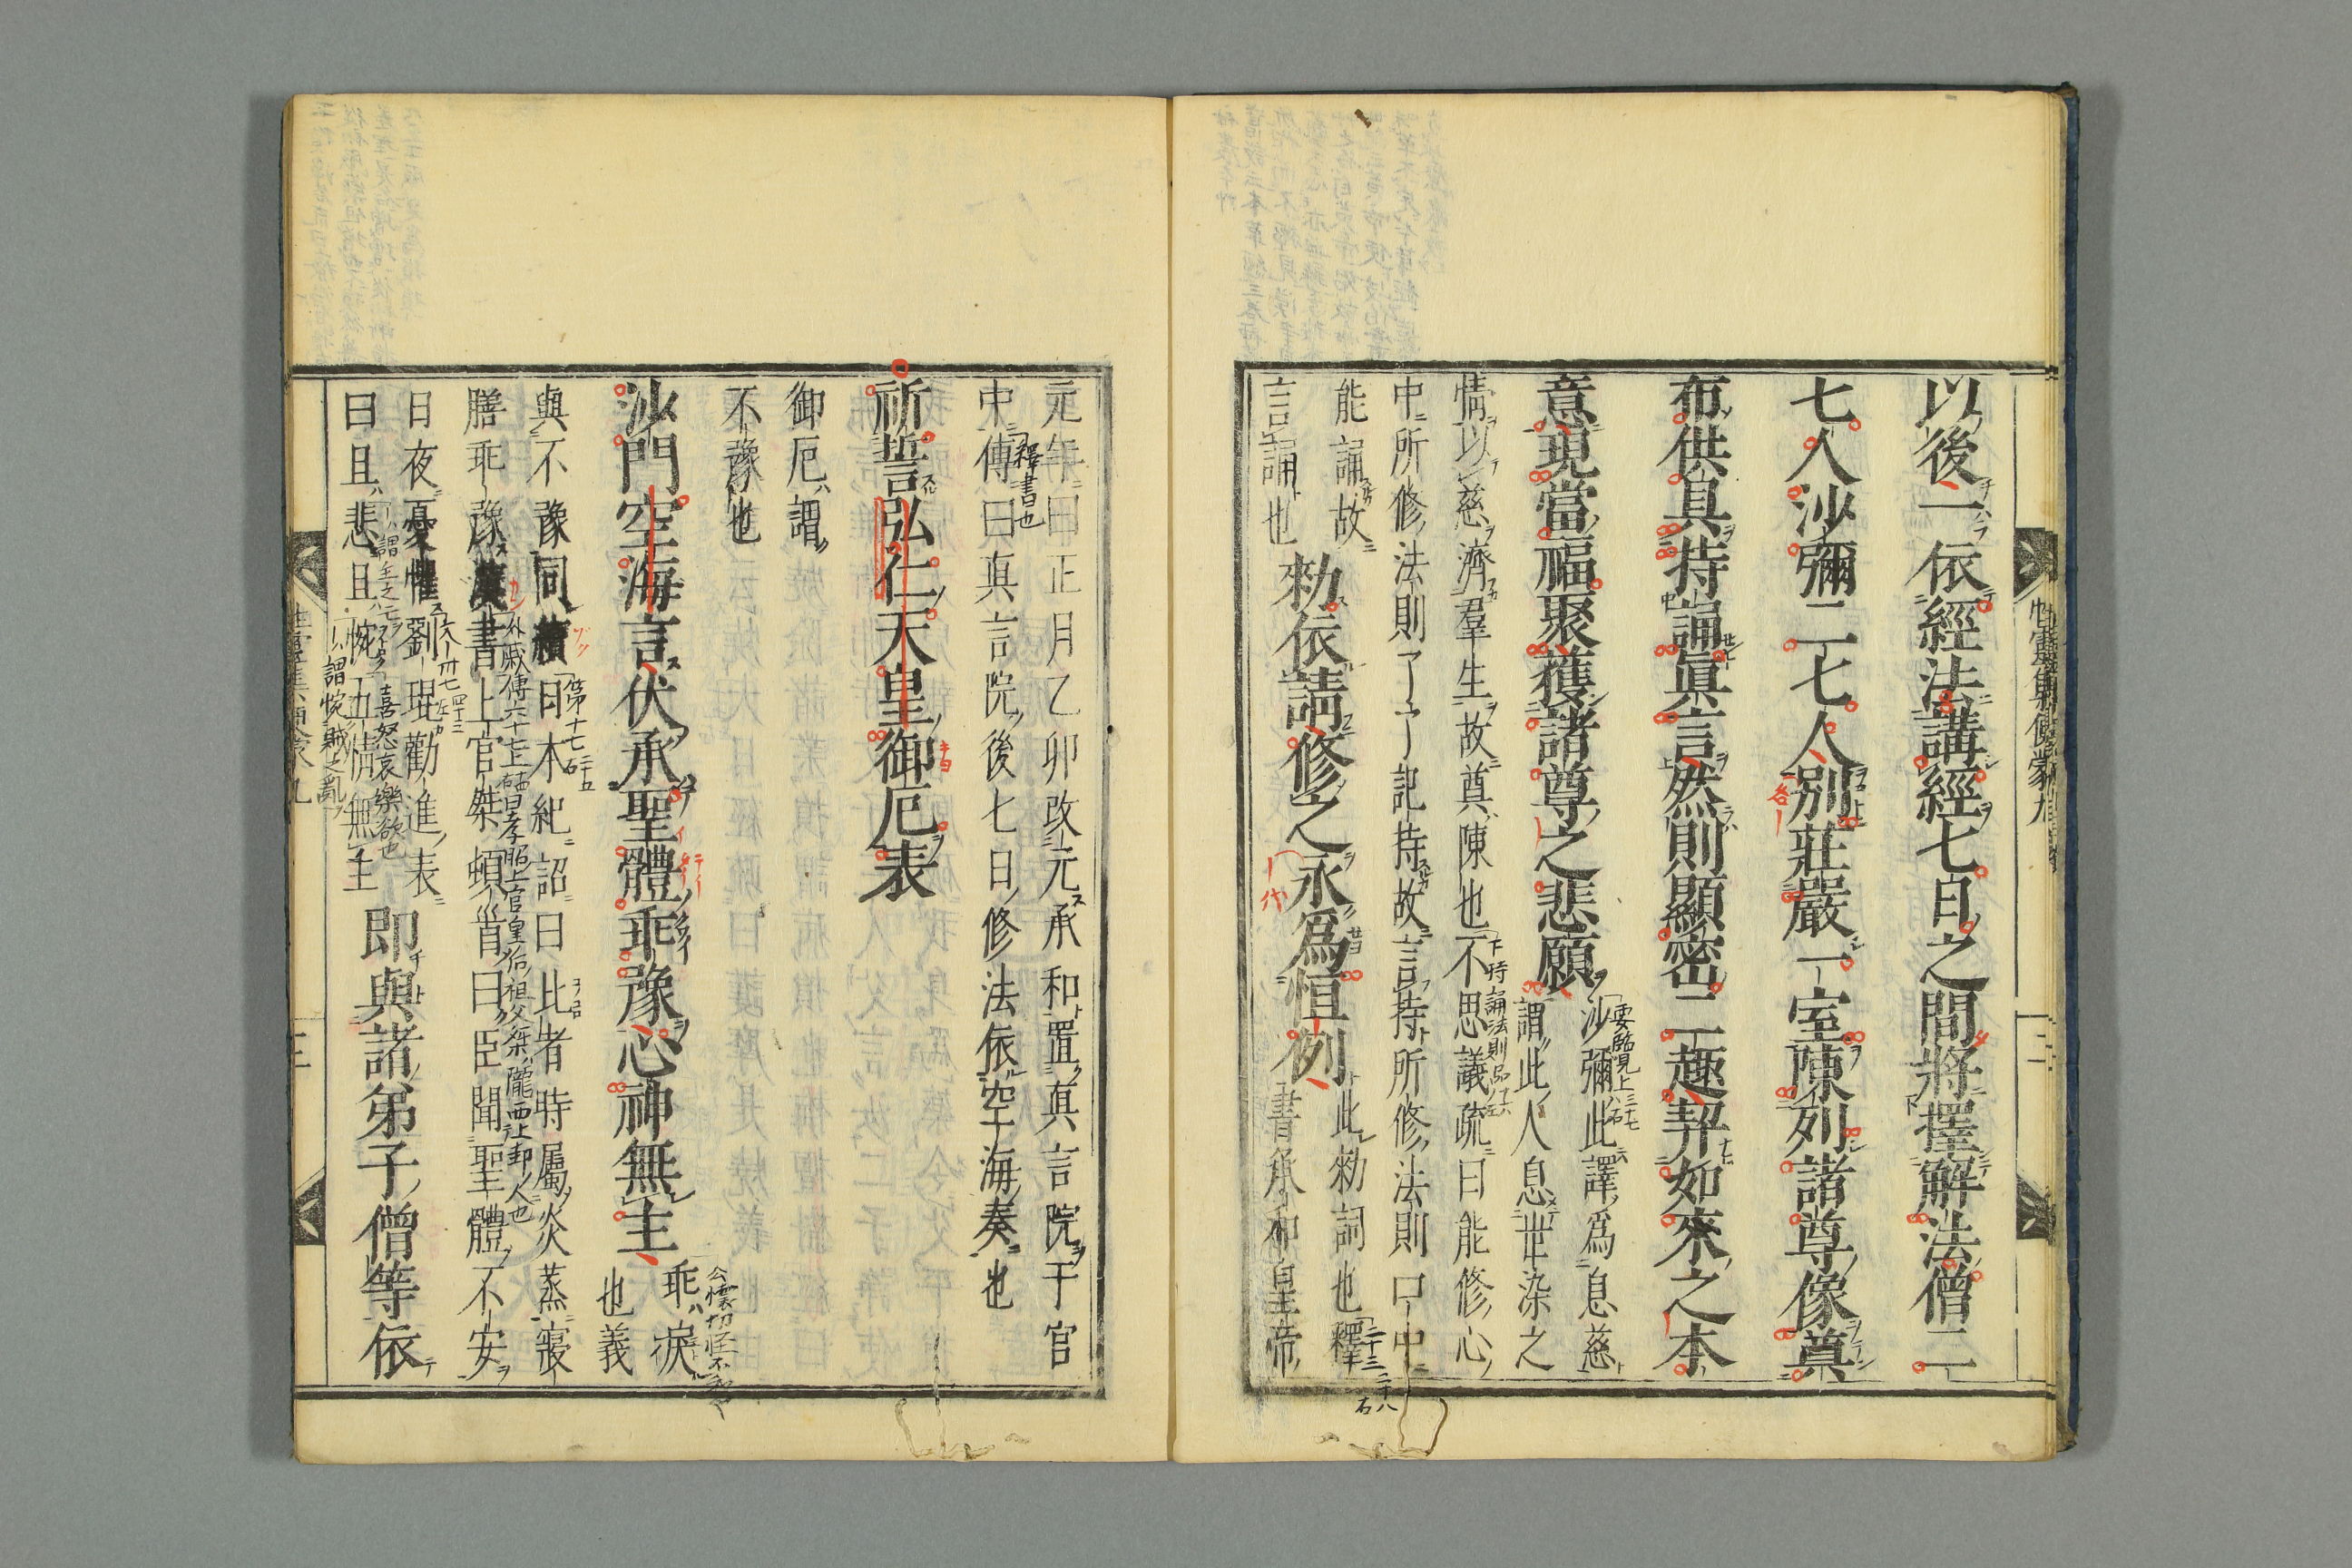 以後一依經法講經七日之間將擇解法僧二
七人沙彌二七人別莊嚴一室陳列諸尊像奠
布供具持誦眞言然則顯密二趣契如來之本
意現當福聚獲諸尊之悲願
沙彌此譯爲息慈
謂此人息世染之
情以慈濟羣生故奠陳也不思議疏曰能修心
中所修法則了了記持故言持所修法則口中
能誦故
言誦也
勅依請修之永爲恒例
此勅詞也釋
書承和皇帝
元年曰正月乙卯改元承和置真言院于官
中傳曰真言院後七日修法依空海奏也
祈誓弘仁天皇御厄表
御厄謂
不豫也
沙門空海言伏承聖體乖豫心神無主
乖戾
也義
與不豫同續日本紀詔曰此者時屬炎蒸寢
膳乖豫漢書上官桀頓首曰臣聞聖體不安
日夜憂懼劉琨勸進表
曰且悲且惋五情無主
即與諸弟子僧等依